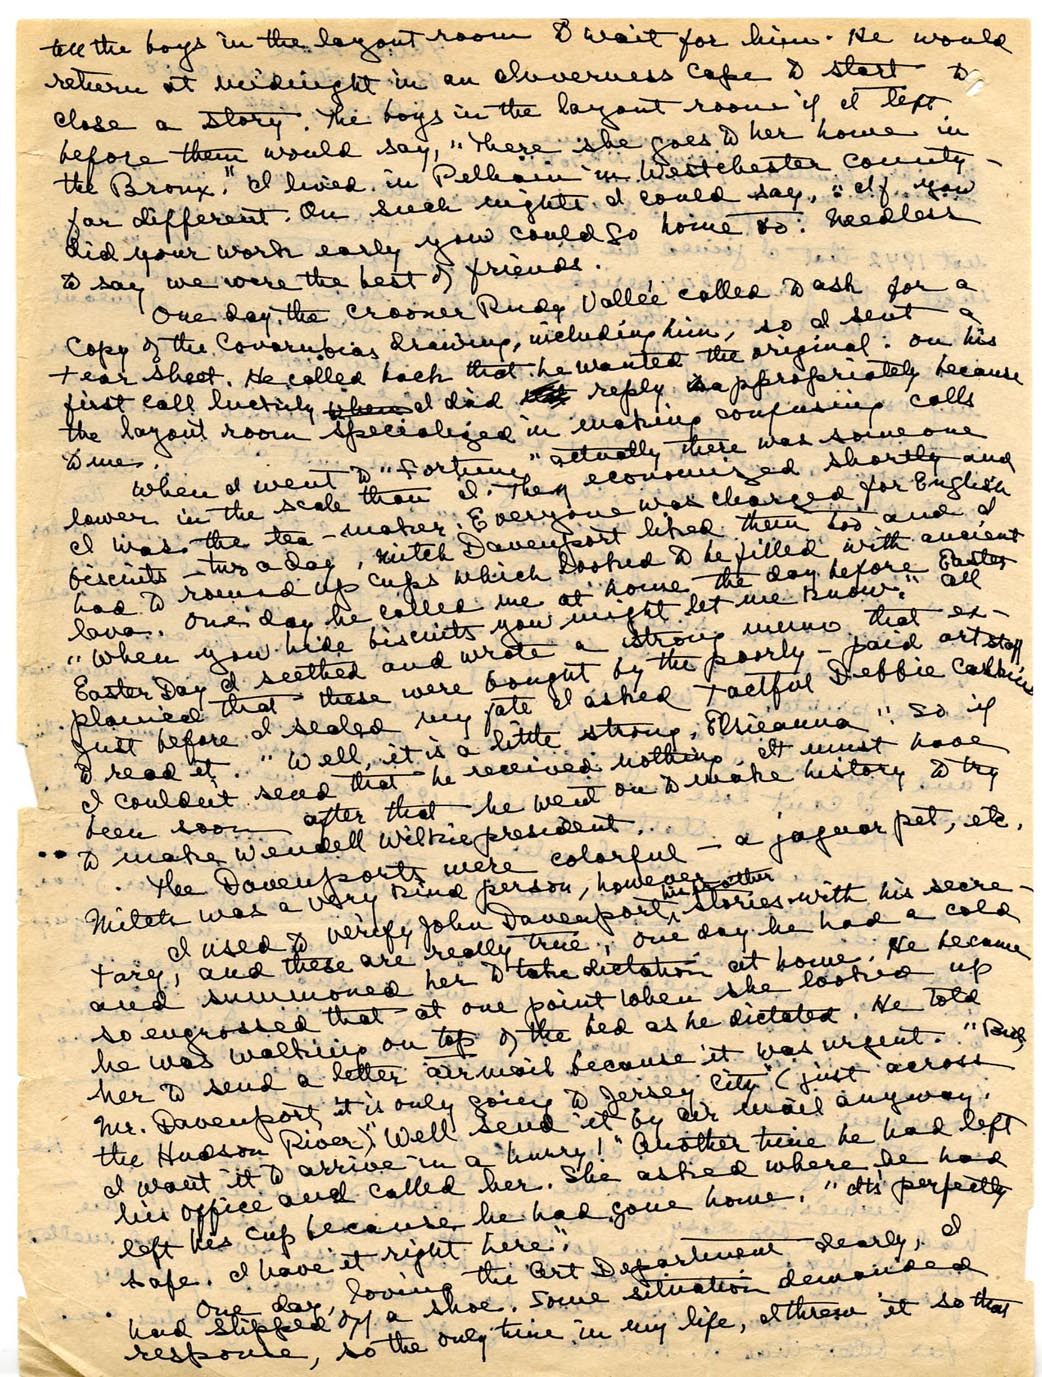 tell the boys in the layout room to wait for him. He would
return at midnight in an Inverness Cape to start to
close a story. The boys in the layout room if I left
before them would say, "There she goes to her home in
the Bronx." I lived in Pelham in Westchester County –
far different. On such nights I could say, "If you
did your work early you could go home too." Needless
to say we were the best of friends.
One day the crooner Rudy Vallée called to ask for a
copy of the Covarrubias drawing, including him, so I sent a
tear sheet. He called back that he wanted the original. On his
first call luckily when I did reply appropriately because
the layout room specialized in making confusing calls
to me.
When I went to "Fortune" actually there was someone
lower in the scale than I. They economized shortly and
I was the tea-maker. Everyone was charged for English
biscuits – two a day, Mitch Davenport liked them too and I
had to round up cups which looked to be filled with ancient
lava. One day he called me at home the day before Easter
"When you hide biscuits you might let me know." All
Easter Day I seethed and wrote a strong memo that ex-
plained that these were bought by the poorly-paid art staff
Just before I sealed my fate I asked tactful Debbie Calkins
to read it. "Well, it is a little strong, Elrieanna". So if
I couldn't send that he received nothing. It must have
been soon after that he went on to make history to try
to make Wendell Wilkie president.
The Davenports were colorful – a jaguar pet, etc.
Mitch was a very kind person, however.
I used to verify John Davenport, his brother stories with his secre-
tary, and these are really true. One day he had a cold
and summoned her to take dictation at home. He became
so engrossed that at one point when she looked up
he was walking on top of the bed as he dictated. He told
her to send a letter airmail because it was urgent. "But,
Mr. Davenport, it is only going to Jersey City" (just across
the Hudson River)". Well send it by air mail anyway.
I want it to arrive in a hurry!" Another time he had left
his office and called her. She asked where he had
left his cup because he had gone home. "It's perfectly
safe. I have it right here".
One day, loving the Art Department dearly, I
had slipped off a shoe. Some situation demanded
response, so the only time in my life, I threw it so that